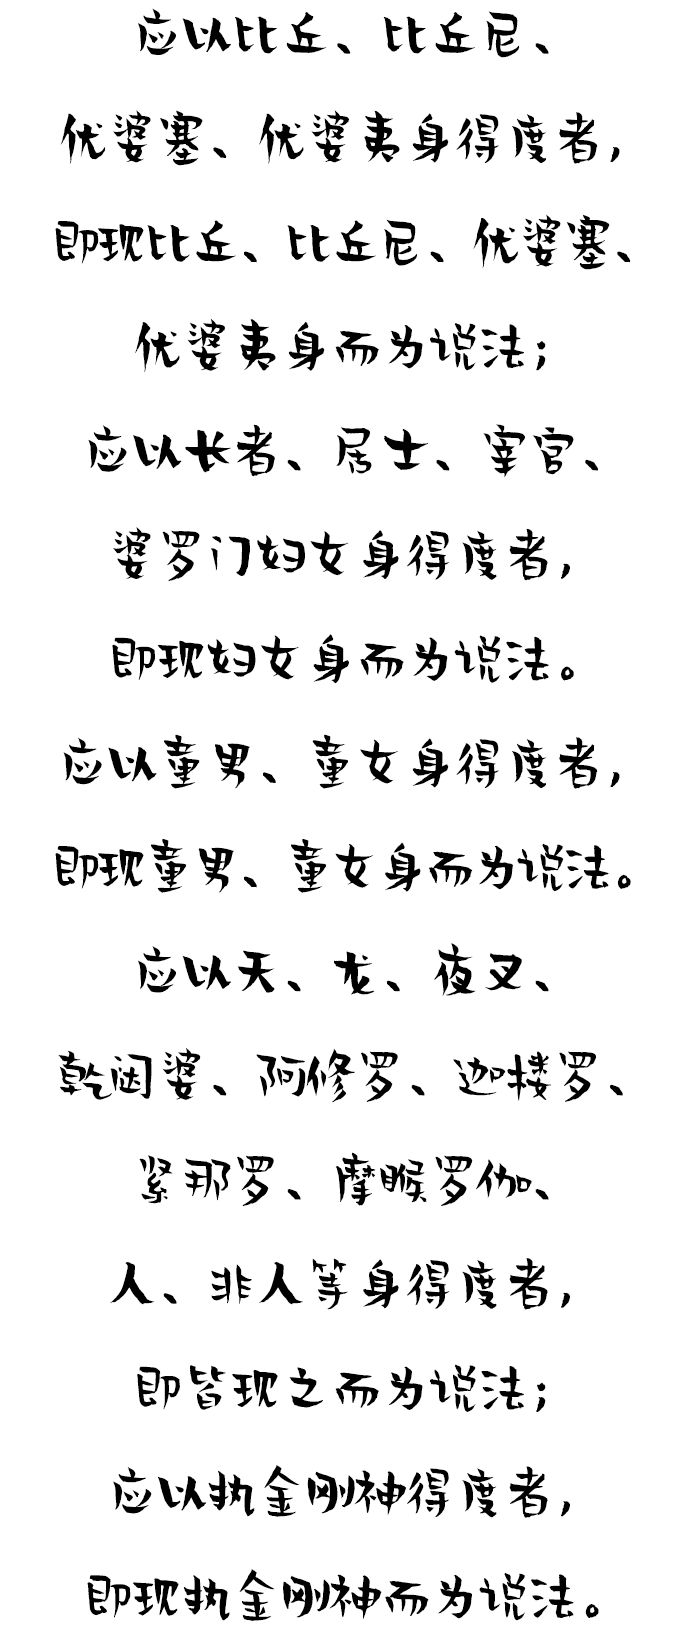 应以比丘、比丘尼、
优婆塞、优婆夷身得度者,
即现比丘、比丘尼、优婆塞、
优婆夷身而为说法;
应以长者、居士、宰官、
婆罗门妇女身得度者,
即现妇女身而为说法。
应以童男、童女身得度者,
即现童男、童女身而为说法。
应以天、龙、夜叉、
乾闼婆、阿修罗、迦楼罗、
紧那罗、摩睺罗伽、
人、非人等身得度者,
即皆现之而为说法;
应以执金刚神得度者,
即现执金刚神而为说法。